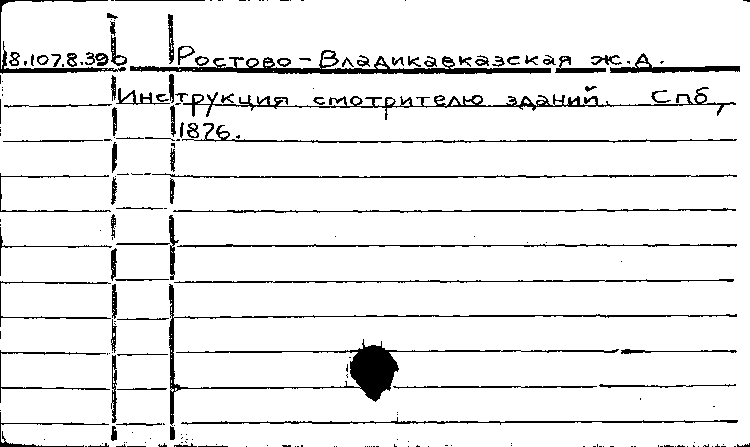 18.107.8.390 Ростово-Владикавказская ж.д.
Инструкция смотрителю зданий. Спб,
1876.